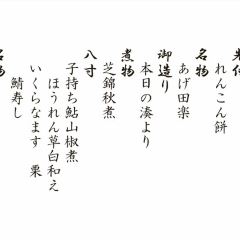 れんこん餅
名物
あげ田楽
御造り
本日の湊より
煮物
芝錦秋煮
八寸
子持ち鮎山椒煮
ほうれん草白和え
いくらなます 栗
鯖寿し
名物